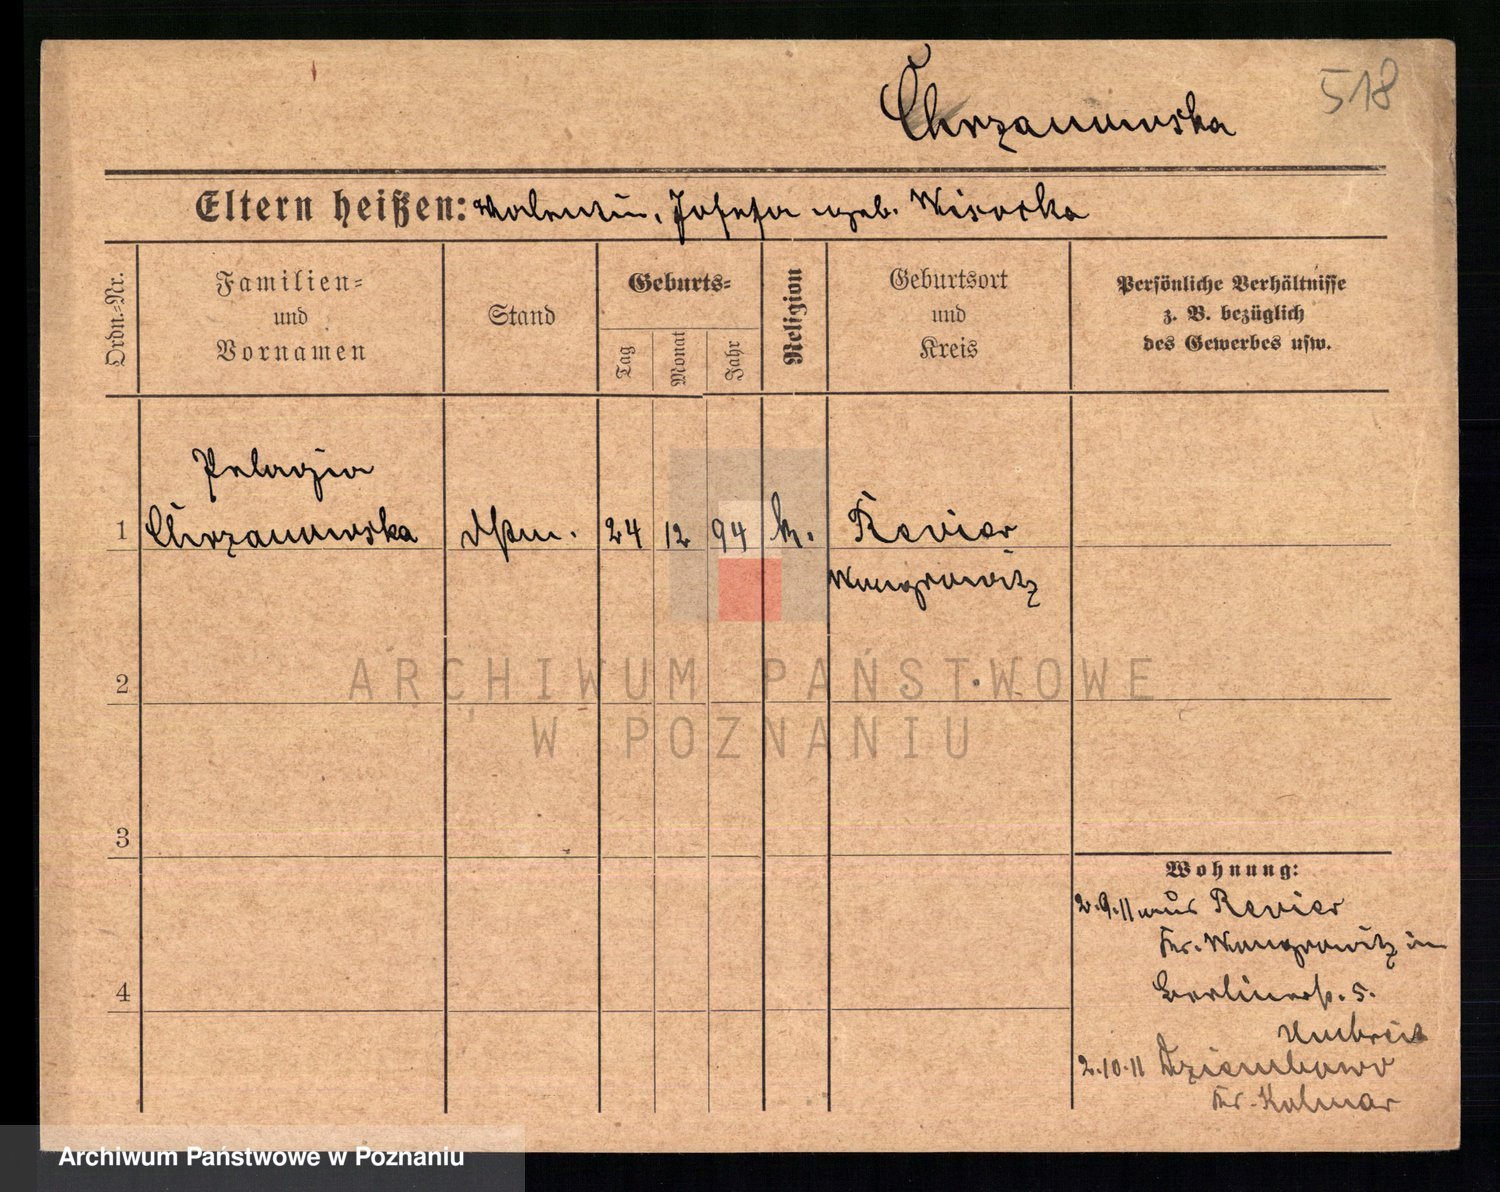 518
Chrzanowska
Eltern heißen: Valentin, Josefa geb. Wisocka
Ordn.-Nr.
Familien-
und
Vornamen
Stand
Geburts-
Tag
Monat
Jahr
Religion
Geburtsort
und
Kreis
Persönliche Verhältnisse
z. B. bezüglich
des Gewerbes usw.
Pelagia
1 Chrzanowska 24 12 94 k. Revier
Wongrowitz
2
ARCHIWUM PAŃSTWOWE
W POZNANIU
3
Wohnung:
2.9.11 aus Revier
Kr. Wongrowitz in
4
Berlinerst. 5.
Umbreit
2.10.11 Dziembowo
Kr. Kolmar
Archiwum Państwowe w Poznaniu